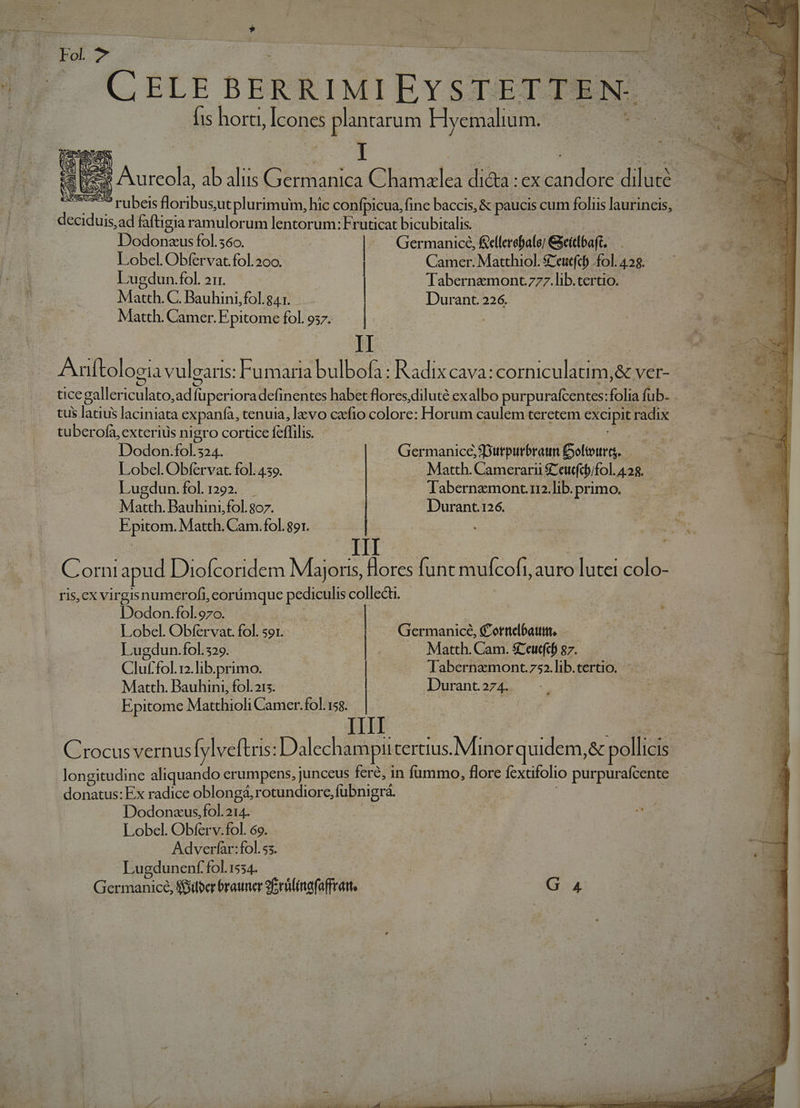 Fol. 7
CELEBERRIMI EYSTETTEN-
ſis horti, Icones plantarum Hyemalium.
I
Laureola, ab aliis Germanica Chamælea dicta: ex candore dilutè
rubeis floribus, ut plurimùm, hîc conſpicua, ſine baccis, & paucis cum foliis laurineis,
deciduis, ad faſtigia ramulorum lentorum: Fruticat bicubitalis.
Dodonæus fol. 360.
Lobel. Obſervat. fol. 200.
Lugdun. fol. 211.
Matth. C. Bauhini, fol. 841.
Matth. Camer. Epitome fol. 937.
Germanicè, Kellershals/ Seidlbaſt.
Camer. Matthiol. Teutſch fol. 428.
Tabernæmont. 777. lib. tertio.
Durant. 226.
II
Ariſtologia vulgaris: Fumaria bulboſa: Radix cava: corniculatim, & ver-
tice gallericulato, ad ſuperiora deſinentes habet flores, dilutè ex albo purpuraſcentes: folia ſub-
tus latius laciniata expanſa, tenuia, lævo cæſio colore: Horum caulem teretem excipit radix
tuberoſa, exteriùs nigro cortice ſeſſilis.
Dodon. fol. 324.
Lobel. Obſervat. fol. 439.
Lugdun. fol. 1292.
Matth. Bauhini, fol. 807.
Epitom. Matth. Cam. fol. 891.
Germanicè, Purpurbraun Holwurtz.
Matth. Camerarii Teutſch/ fol. 428.
Tabernæmont. 112. lib. primo.
Durant. 126.
III
Corni apud Dioſcoridem Majoris, flores ſunt muſcoſi, auro lutei colo-
ris, ex virgis numeroſi, eorúmque pediculis collecti.
Dodon. fol. 970.
Lobel. Obſervat. fol. 591.
Lugdun. fol. 329.
Cluſ. fol. 12. lib. primo.
Matth. Bauhini, fol. 213.
Epitome Matthioli Camer. fol. 158.
Germanicè, Cornelbaum.
Matth. Cam. Teutſch 87.
Tabernæmont. 752. lib. tertio.
Durant. 274.
IIII
Crocus vernus ſylveſtris: Dalechampii tertius. Minor quidem, & pollicis
longitudine aliquando erumpens, junceus ferè, in ſummo, flore ſextifolio purpuraſcente
donatus: Ex radice oblongâ, rotundiore, ſubnigrâ.
Dodonæus, fol. 214.
Lobel. Obſerv. fol. 69.
Adverſar: fol. 53.
Lugdunenſ. fol. 1534.
Germanicè, Wilder brauner Frülingſaffran.
G 4